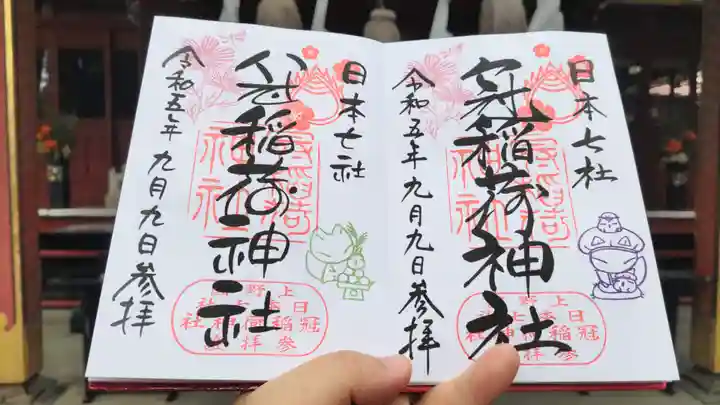 日本七社
冠稲荷神社
令和五年 九月九日参拝
上野国
日本七社
冠稲荷神社
参拝
日本七社
冠稲荷神社
令和五年 九月九日参拝
日本七社
冠稲荷神社
参拝